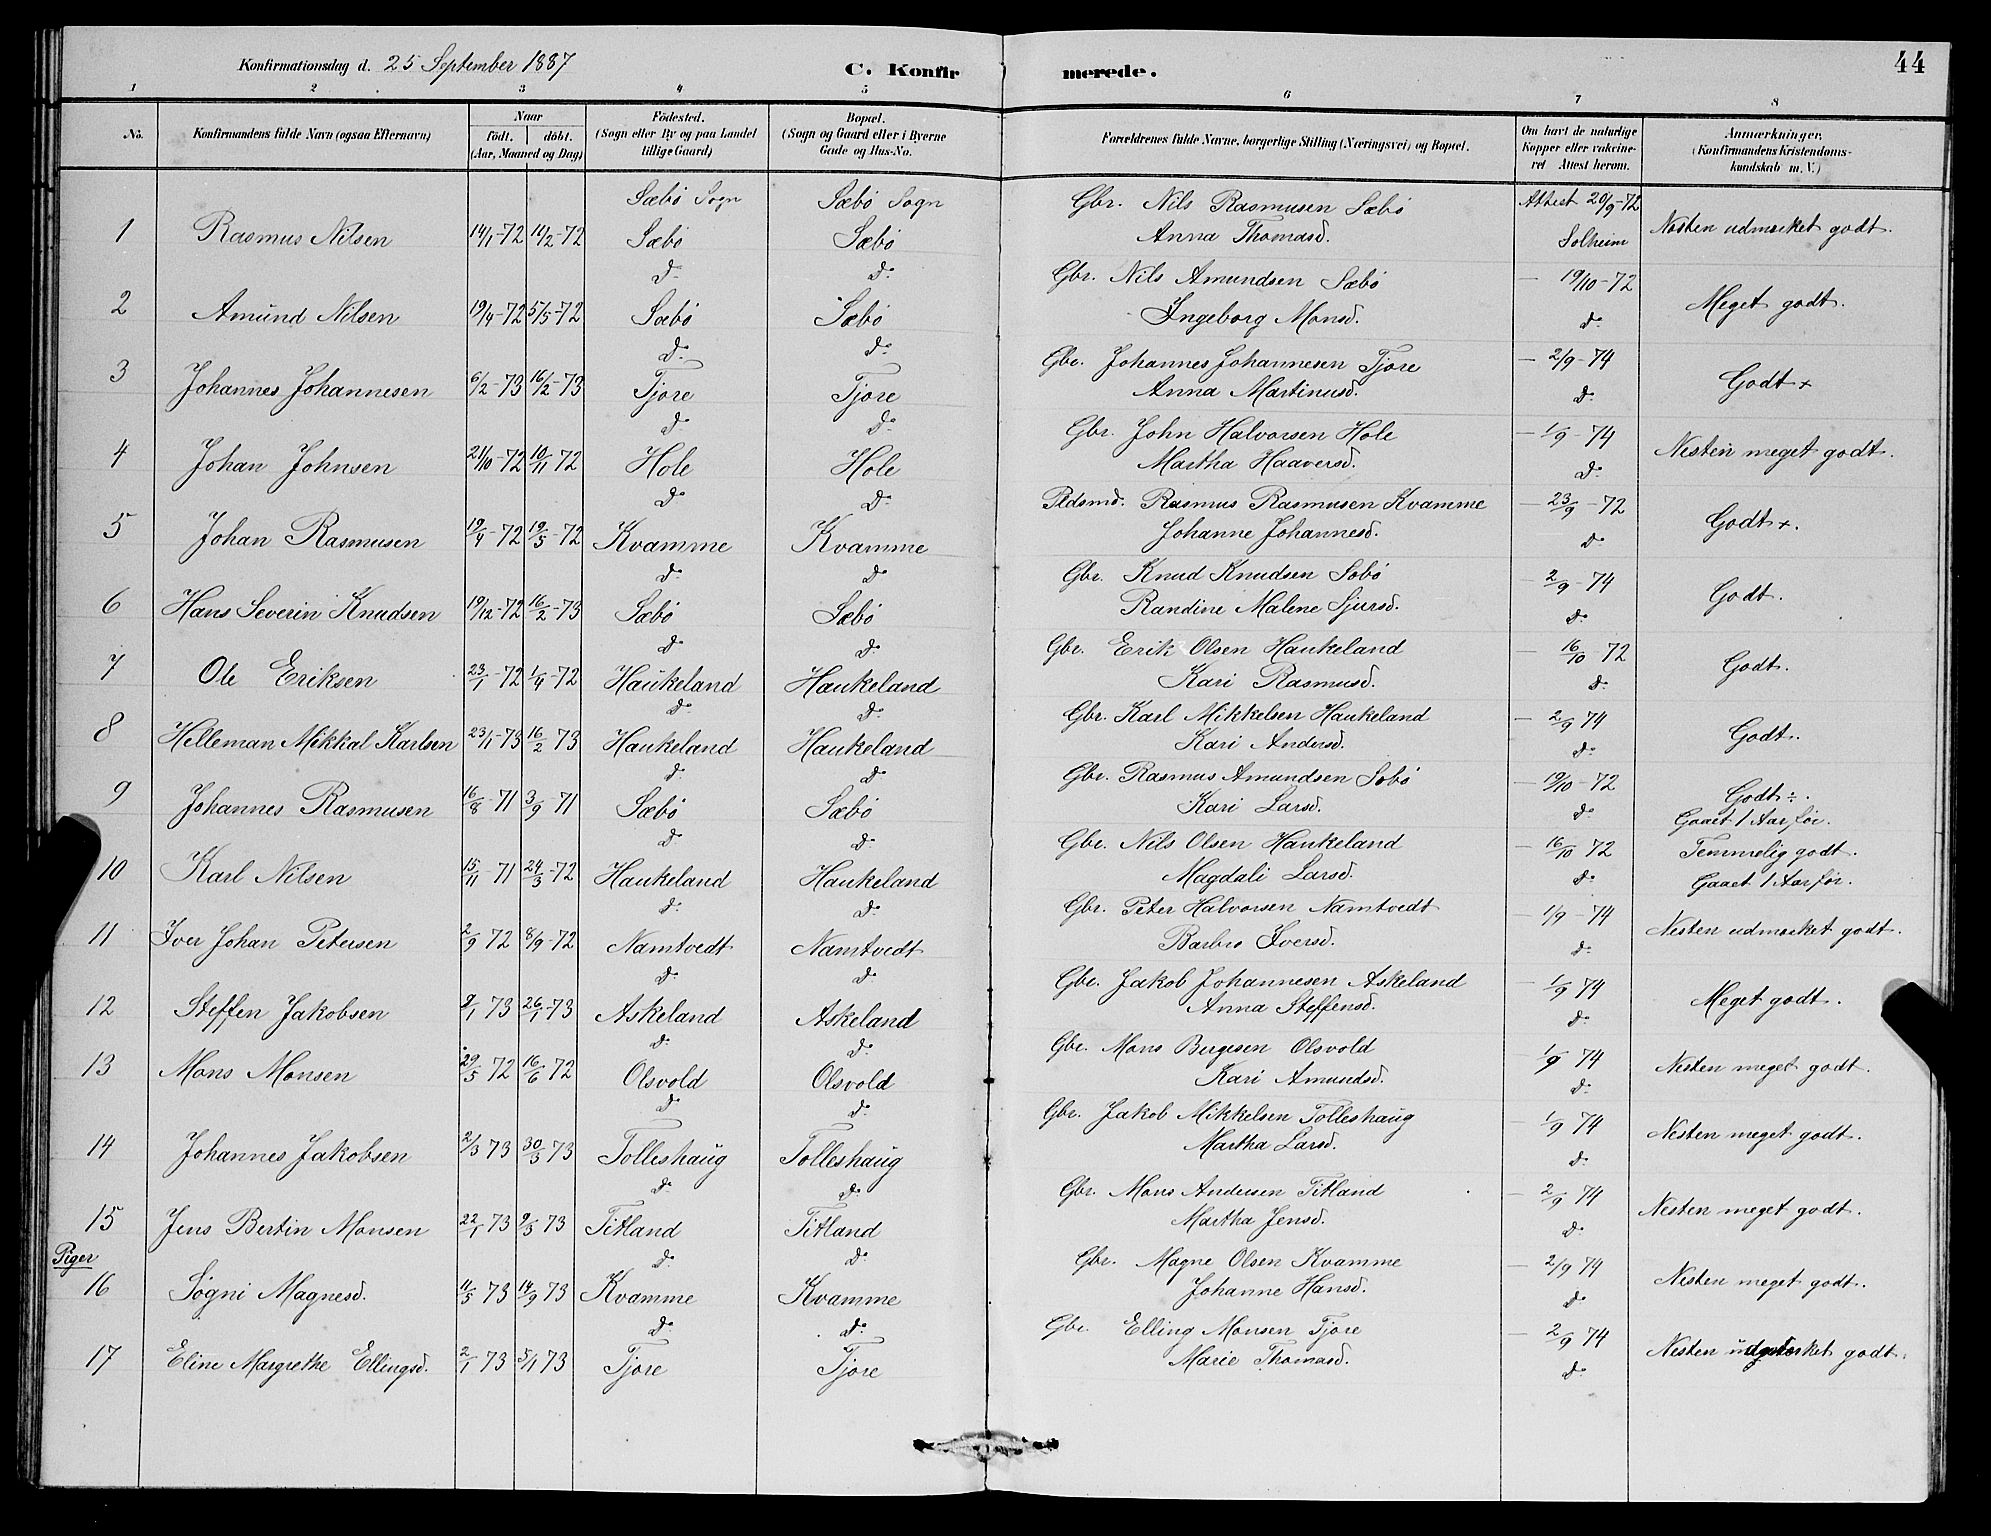 Konfirmationsdag d. 25 September 1887 C. Konfirmerede. 44
1 2 3 4 5 6 7 8
No. Konfirmandens fulde Navn (ogsaa Efternavn) Naar födt. döbt. (Aar, Maaned og Dag) Födested. (Sogn eller By og paa Landet tillige Gaard) Bopæl. (Sogn og Gaard eller i Byerne Gade og Hus-No. Forældrenes fulde Navne, borgerlige Stilling (Næringsvei) og Bopæl. Om havt de naturlige Kopper eller vakcineret Attest herom. Anmærkninger. (Konfirmandens Kristendomskundskab m. V.)
Sæbö Sogn Sæbö Sogn Gbr. Nils Rasmusen Sæbö Attest 20/9-72
1 Rasmus Nilsen 14/1-72 11/2-72 Sæbö Sæbö Anna Thomasd. Solheim Nesten udmærket godt.
d. d. Gbr. Nils Amundsen Sæbö - 19/10-72
2 Amund Nilsen 19/4-72 5/5-72 Sæbö Sæbö Ingeborg Monsd. d. Meget godt.
d. d. Gbr. Johannes Johannesen Tjore - 2/9-74
3 Johannes Johannesen 6/2-73 16/2-73 Tjore Tjore Anna Martinusd. d. Godt +
d. d. Gbr. John Halvorsen Hole - 1/9-74
4 Johan Johnsen 21/10-72 10/11 72 Hole Hole Martha Haaversd. d. Nesten meget godt.
d. d. Pldsmd. Rasmus Rasmusen Kvamme - 23/9-72
5 Johan Rasmusen 19/4-72 19/5-72 Kvamme Kvamme Johanne Johannesd. d. Godt +.
d. d. Gbr. Knud Knudsen Sæbö - 2/9-74
6 Hans Severin Knudsen 19/12-72 16/2-73 Sæbö Sæbö Randine Malene Sjursd. d. Godt.
d. d. Gbr. Erik Olsen Haukeland - 16/10 72
7 Ole Eriksen 23/1-72 1/4-72 Haukeland Haukeland Kari Rasmusd. d. Godt.
d. d. Gbr. Karl Mikkelsen Haukeland - 2/9 74
8 Helleman Mikkal Karlsen 23/1-73 16/2 73 Haukeland Haukeland Kari Andersd. d. Godt.
d. d. Gbr. Rasmus Amundsen Sæbö - 19/10-72
9 Johannes Rasmusen 16/8-71 3/9-71 Sæbö Sæbö Kari Larsd. d. Godt ÷. Gaaet 1 Aar för.
d. d. Gbr. Nils Olsen Haukeland - 16/10 72 Temmelig godt.
10 Karl Nilsen 15/11 71 24/3-72 Haukeland Haukeland Magdali Larsd. d. Gaaet 1 Aar för.
d. d. Gbr. Peter Halvorsen Namtvedt 1/9-74
11 Iver Johan Petersen 2/9 72 8/9-72 Namtvedt Namtvedt Barbro Iversd. d. Nesten udmærket godt.
d. d. Gbr. Jakob Johannesen Askeland - 1/9 74
12 Steffen Jakobsen 73 26/1-73 Askeland Askeland Anna Steffensd. d. Meget godt.
d. d. Gbr. Mons Birgesen Olsvold - 1/9 74
13 Mons Monsen 29/5 72 16/6 72 Olsvold Olsvold Kari Amundsd. d. Nesten meget godt.
d. d. Gbr. Jakob Mikkelsen Tolleshaug - 1/9 74
14 Johannes Jakobsen 2/3 73 30/3 73 Tolleshaug Tolleshaug Martha Larsd. d. Nesten meget godt.
d. d. Gbr. Mons Andersen Titland - 2/9 74
15 Jens Bertin Monsen 22/1 73 9/3 73 Titland Titland Martha Jensd. d. Nesten meget godt.
Piger
d. d. Gbr. Magne Olsen Kvamme - 2/9 74
16 Søgni Magnesd. 11/5 73 14/9 73 Kvamme Kvamme Johanne Hansd. d. Nesten meget godt.
d. d. Gbr. Elling Monsen Tjore - 2/9 74
17 Eline Margrethe Ellingsd. 2/1 73 5/1 73 Tjore Tjore Marie Thomasd. d. Nesten godt.